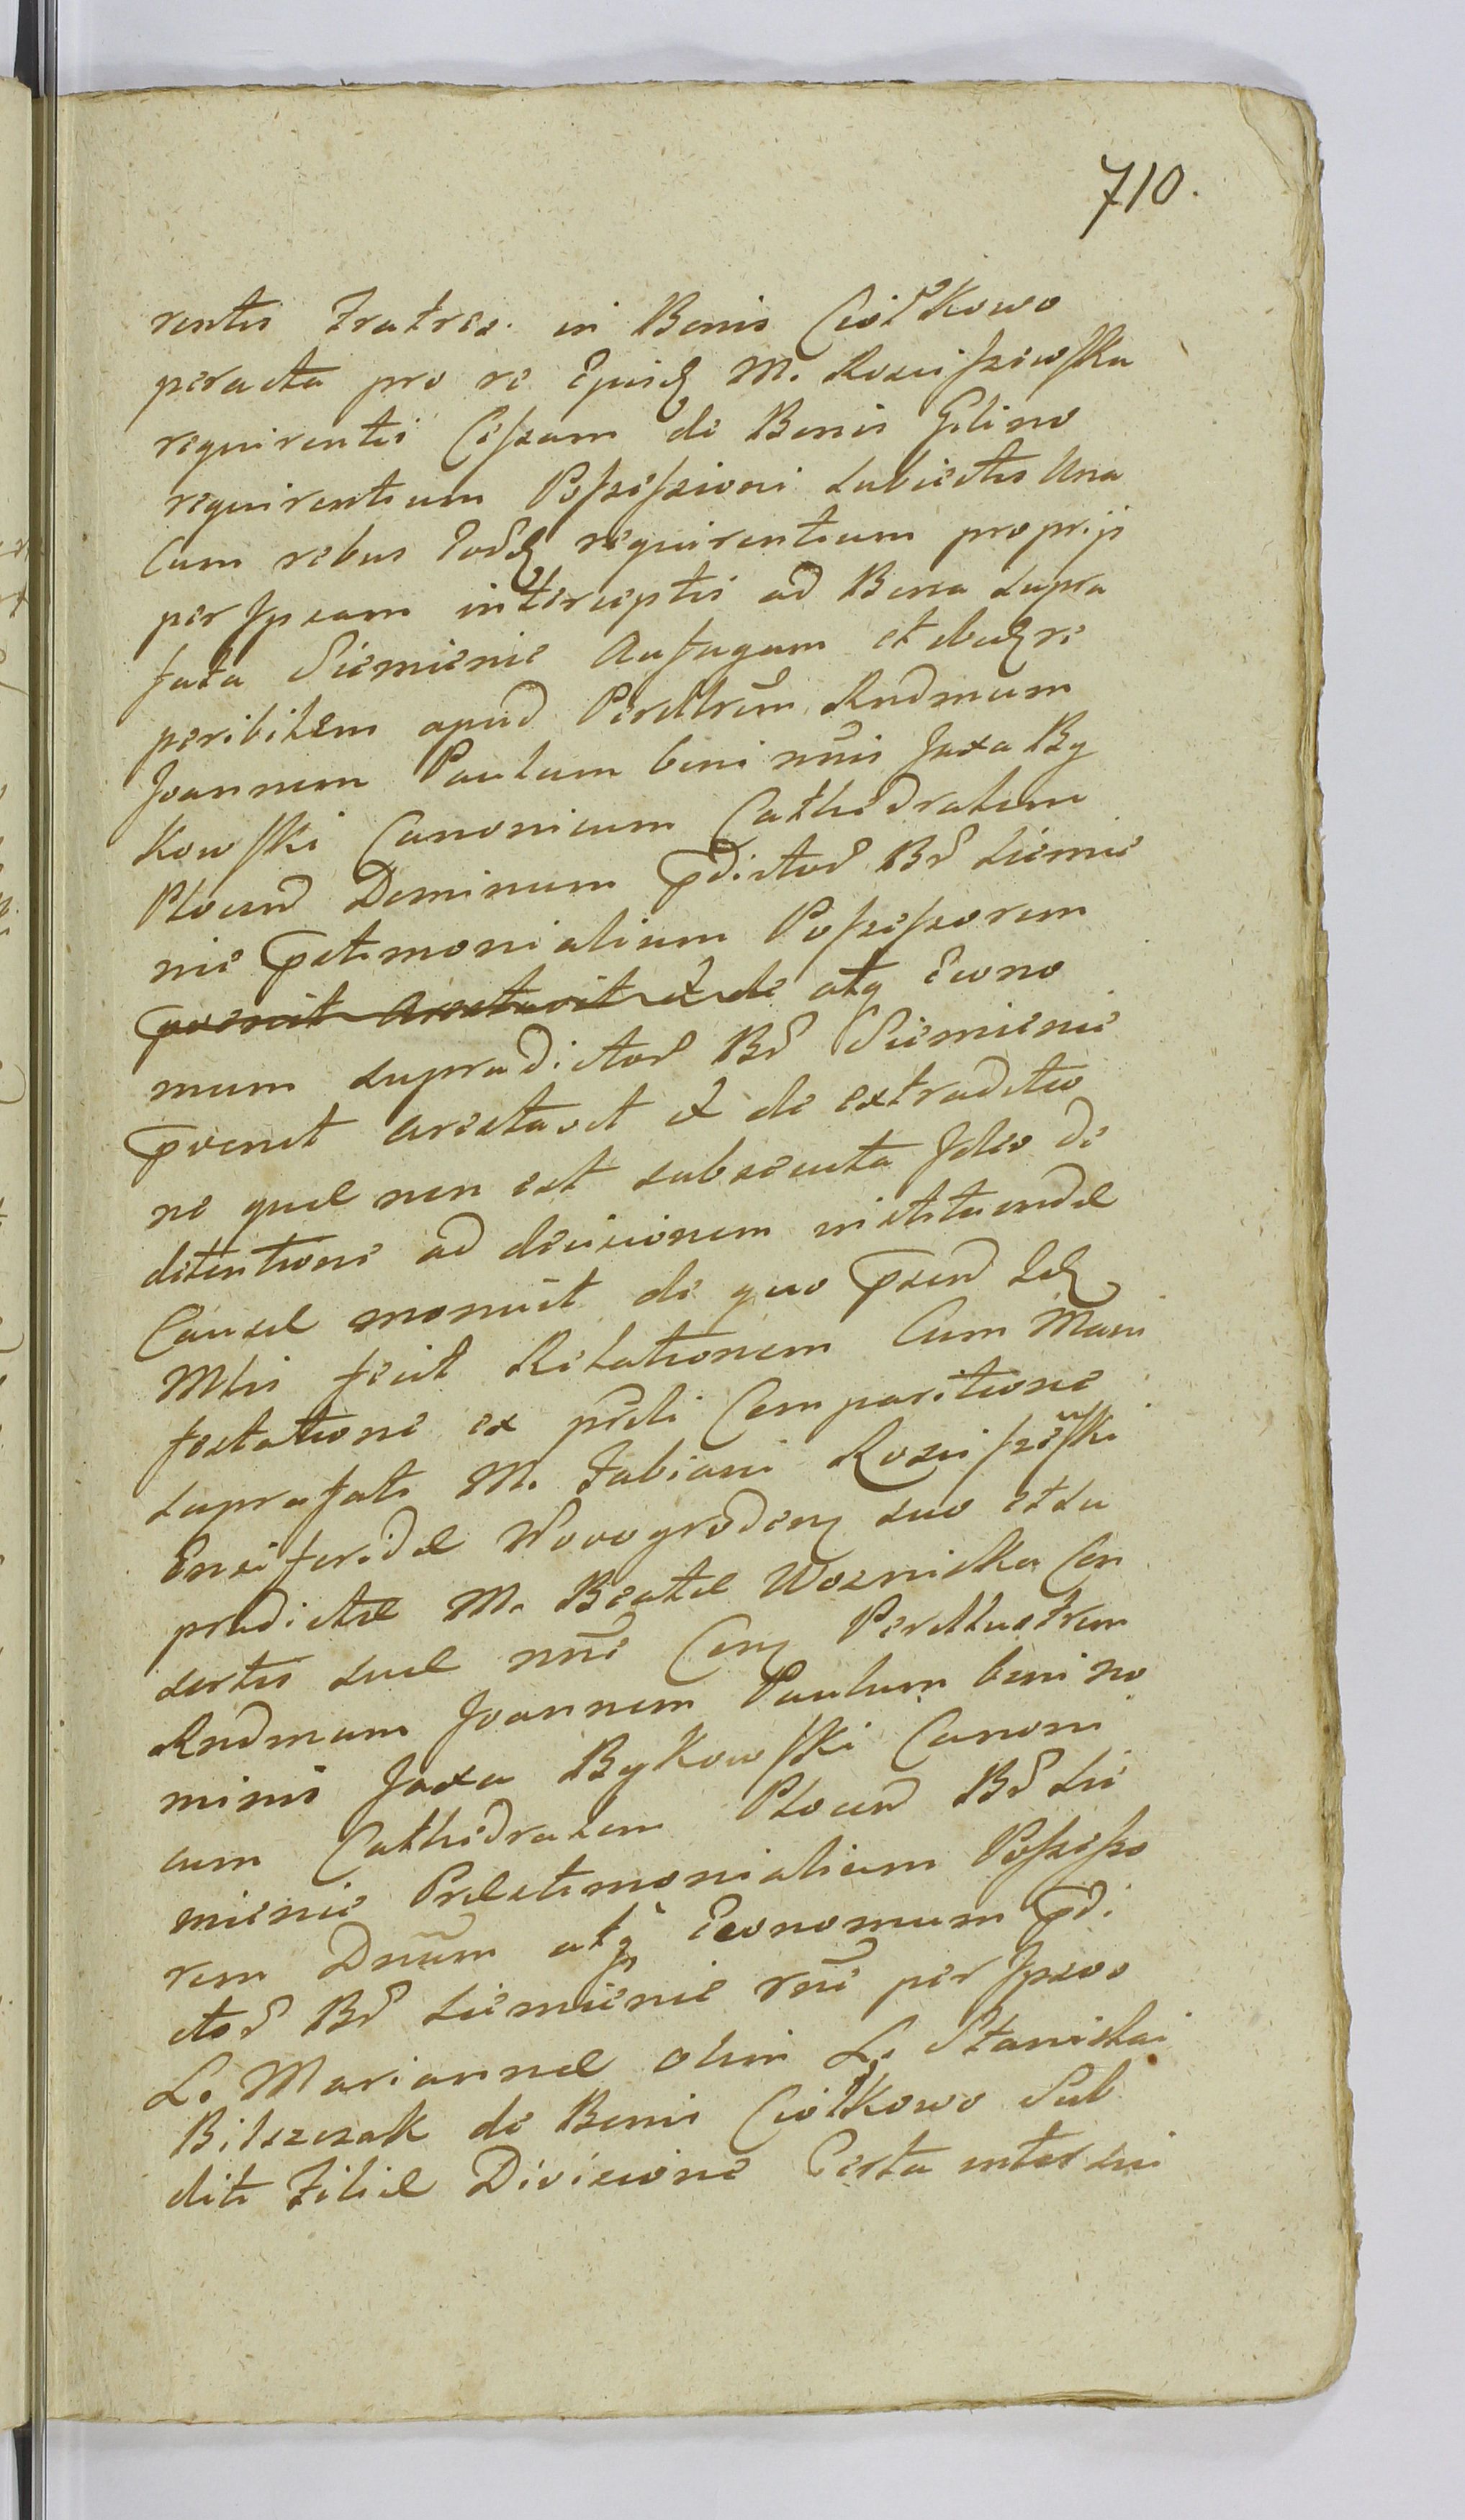 710.
rentis Fratres. in Bonis Ciołkowo
peracta pro re Ejusd M. Rosciszewska
requirentis Cessam de Bonis Gilino
requirentium Possessioni subiectis Una
Cum rebus Eord requirentium proprijs
per Ipsam interceptis ad Bona supra
fata Siemienie Aufugam et
peribitem apud Perillrem Rndmum
Joannem Paulum bini nnis Jaxa By
kowski Canonicum Cathedralem
Plocen Dominum pdictor Br Siemie
nie pstimonialium Possessorem
pvenit Arestavit et de atq Econo
mum supradictor Br Siemienie
pvenit arestavit et de extraditio
ne quae non est subsecuta Ideo de
detentione ad decisionem instituendae
Causae monuit de quo psens
Mtis fecit Relationem Cum Mani
festatione ex psti Comparitione
suprafati M. Fabiani Rosciszewski
Ensiferidae Novogroden suo et su
pradictae M. Beatae Woznicka Con
sortis suae nnie Con Perillustrem
Rndmum Joannem Paulum bini no
minis Jaxa Bykowski Canoni
cum Cathedralem Plocen Br Sie
mienie Praestimonialium Possesso
rem Dnum atq Economum pdi
ctor Br Siemienie rne per Ipsos
L. Mariannae olim L. Stanislai
Bilszczak de Bonis Ciołkowo Sub
diti Filiae Divisione Certa inter sui